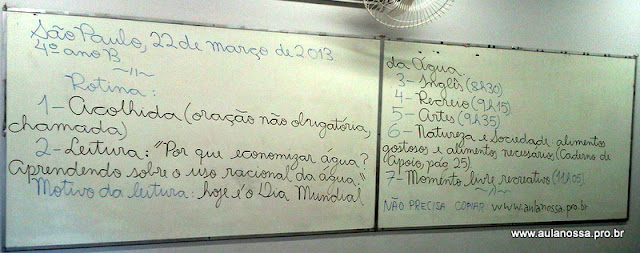 São Paulo, 22 de março de 2013
4º ano B
~//~
Rotina:
1- Acolhida (oração não obrigatória,
chamada)
2- Leitura: "Por que economizar água?
Aprendendo sobre o uso racional da água"
Motivo da leitura: hoje é o Dia Mundial
da Água.
3- Inglês (8h30)
4- Recreio (9h15)
5- Artes (9h35)
6- Natureza e Sociedade: alimentos
gostosos e alimentos necessários (Caderno de
Apoio, pág. 25).
7- Momento livre recreativo (11h05).
~//~
NÃO PRECISA COPIAR www.aulanossa.pro.br
www.aulanossa.pro.br